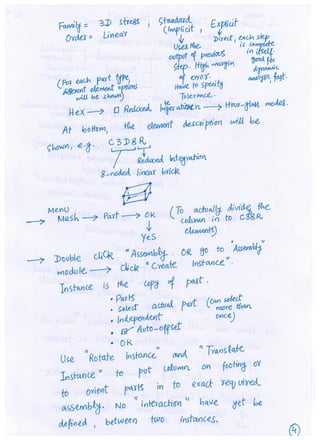 Family = 3D stress , Standard, Explicit
Order = Linear (Implicit)
Direct, each step
is complete
in itself.
Good for
dynamic
analysis, fast.
Uses the
output of previous
step. High margin
of error.
Have to specify
Tolerance.
(For each part type,
different element options
will be shown)
Hex → □ Reduced Integration → Hour-glass model.
At bottom, the element description will be
shown, e.g. C3D8R
Reduced Integration
8-noded linear brick
MENU
→ Mesh → Part → OK (To actually divide the
column in to C38R
elements)
Yes
→ Double click "Assembly". OR go to "Assembly"
module → Click "Create Instance".
Instance is the copy of part.
• Parts
• Select actual part (can select
more than
once)
• Independent
• ☑ Auto-offset
• OK
Use "Rotate Instance" and "Translate
Instance" to put column on footing or
to orient parts in to exact required
assembly. No "interaction" have yet be
defined, between two instances.
4